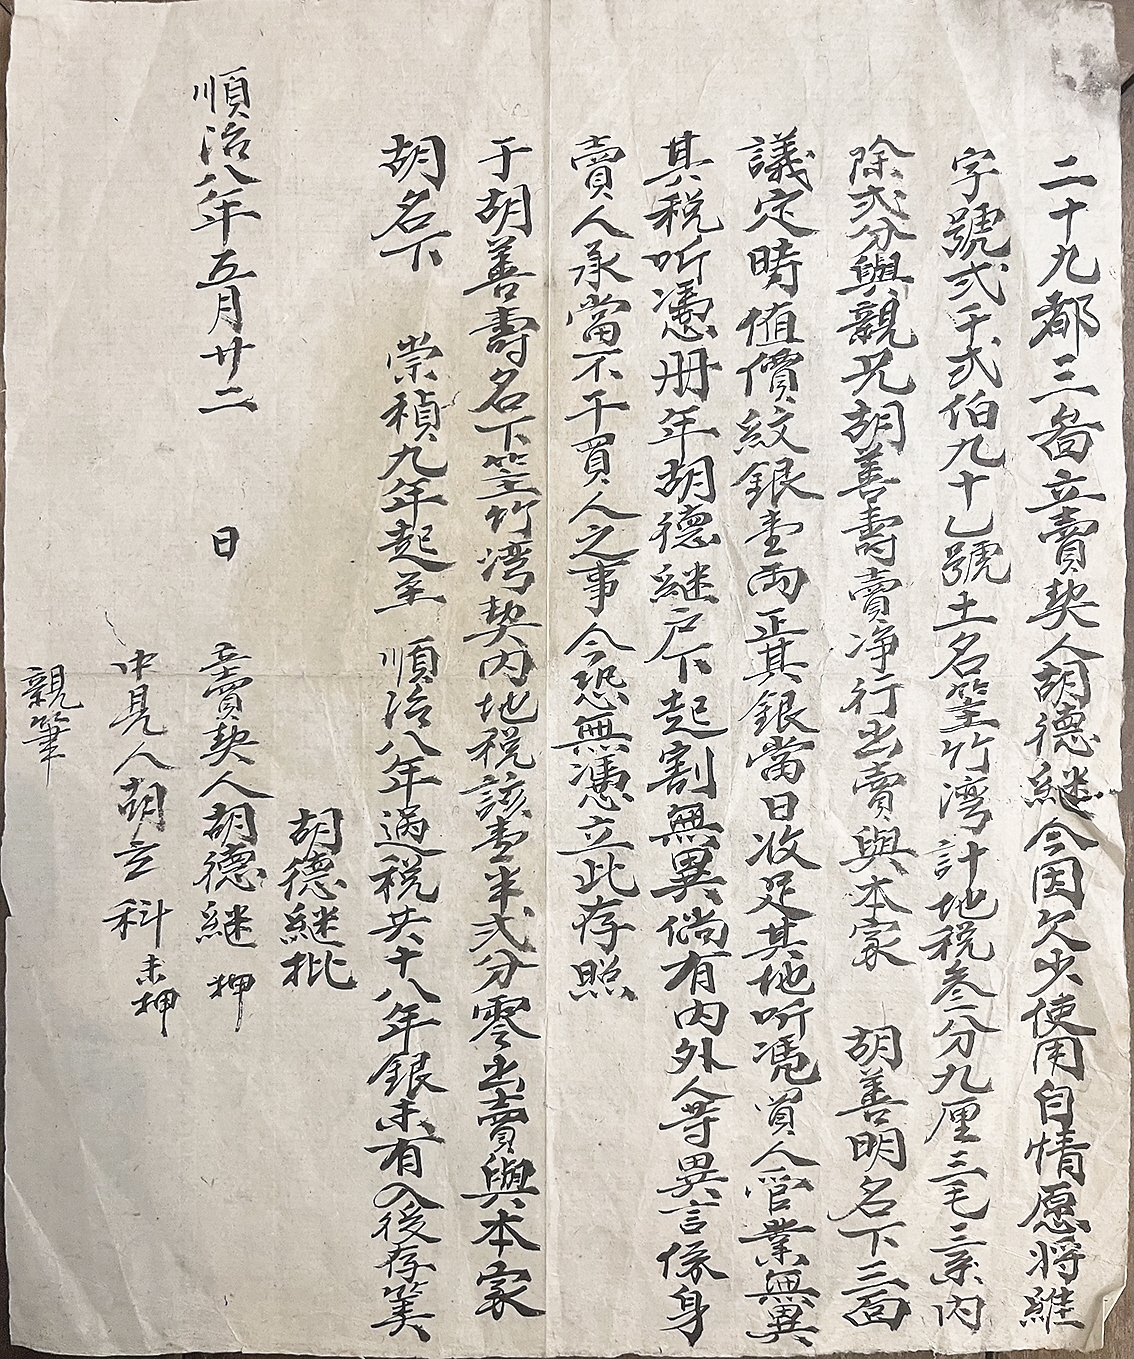 二十九都三啚立賣契人胡德継今因欠少使用自情愿將維
字號弍千弍伯九十乙號土名筀竹湾計地税叁分九厘三毛三系内
除弍分與親兄胡善壽賣净行出賣與本家 胡善明名下三面
議定時值價紋銀壹両正其銀當日收足其地听凴買人管業無異
其税听憑册年胡德継户下起割無異倘有内外人等異言係身
賣人承當不干買人之事今恐無憑立此存照
于胡善壽名下筀竹湾契内地税該壹半弍分零出賣與本家
胡名下 崇禎九年起至 順治八年過税共十八年銀未有入後存筭
胡德継批
順治八年五月廿二 日 立賣契人胡德継 押
中見人胡立科 未押
親筆